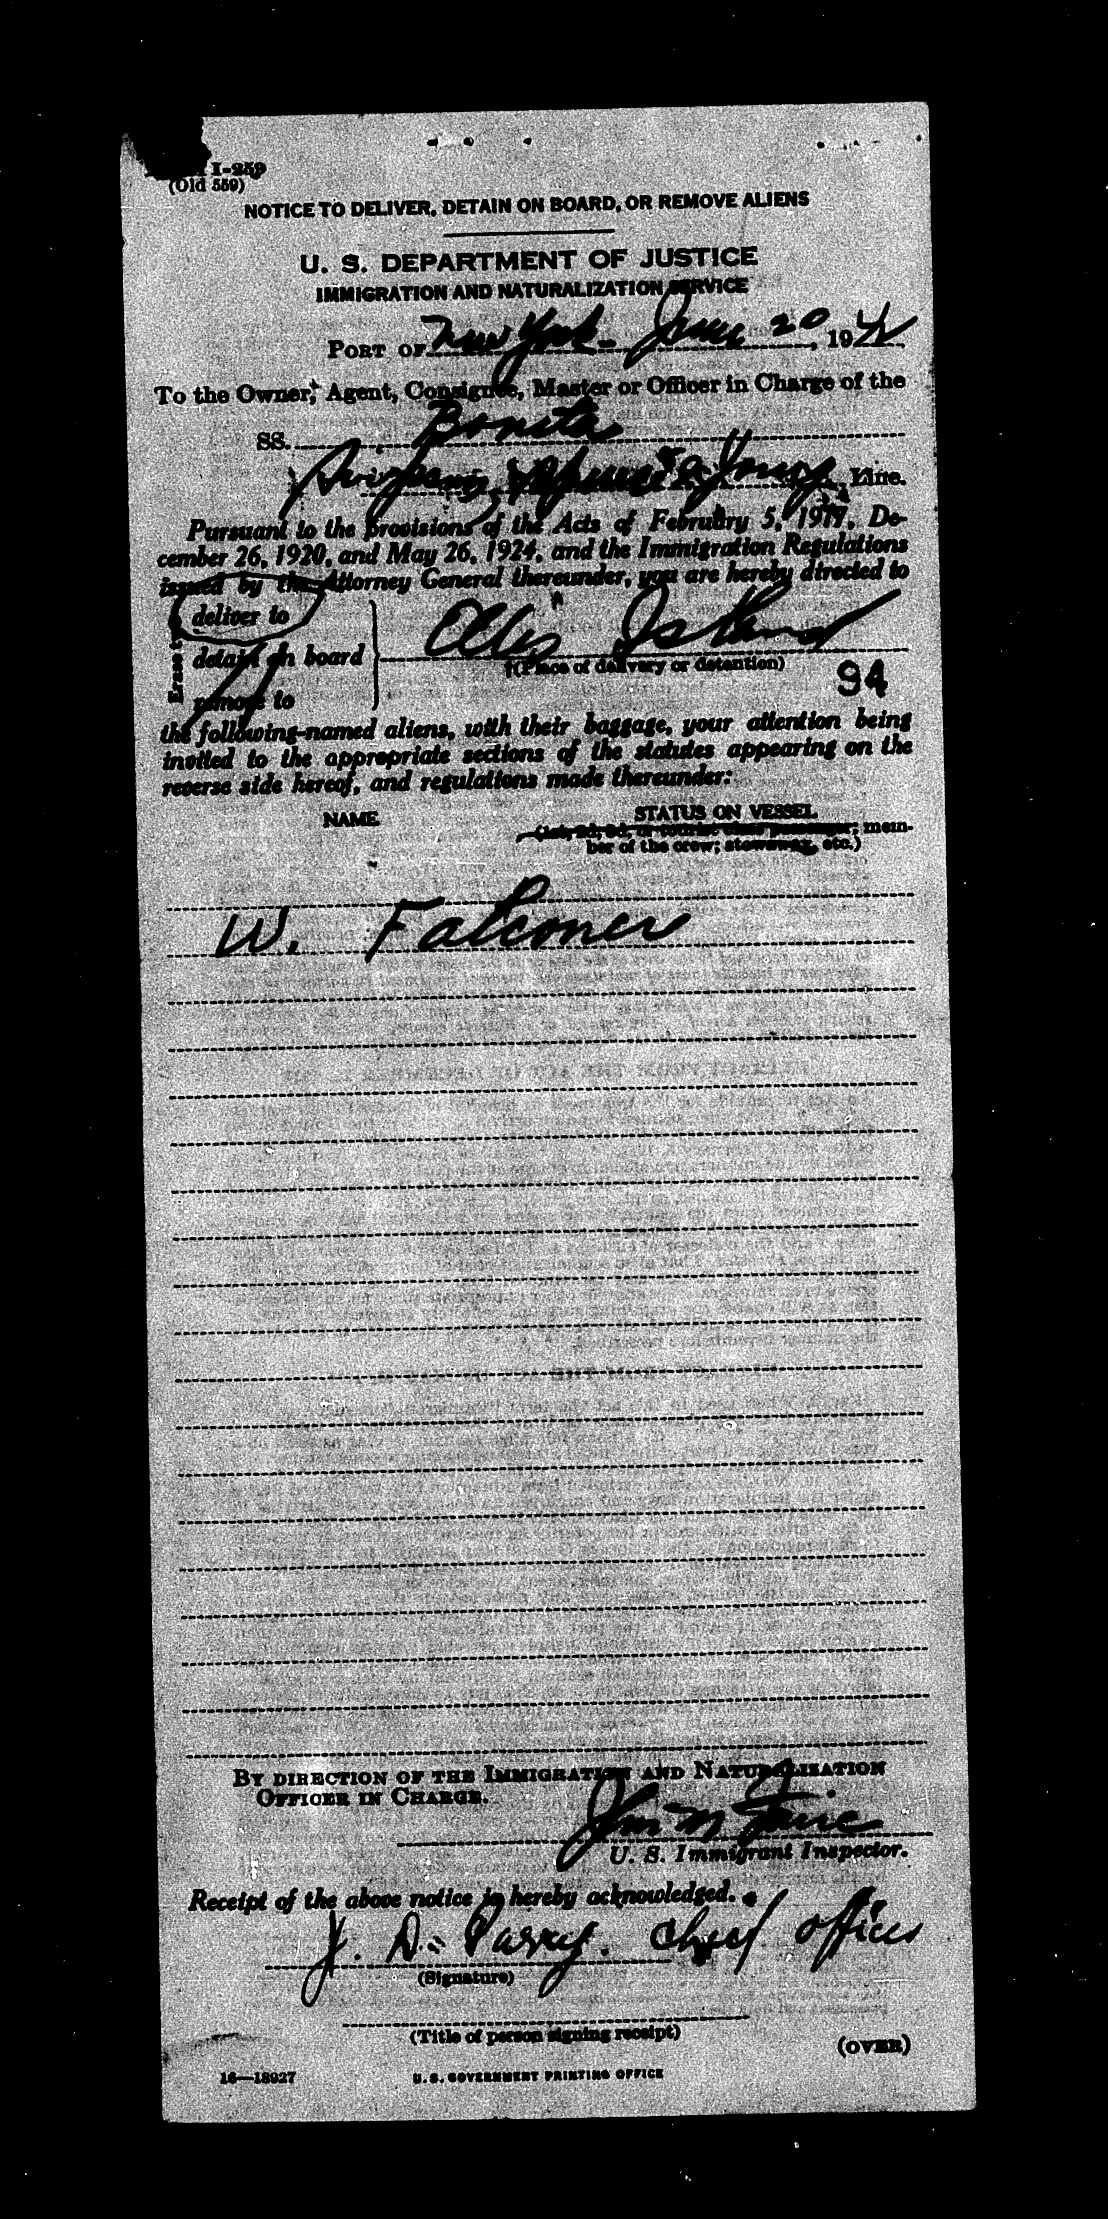 I-259
(Old 559)
NOTICE TO DELIVER, DETAIN ON BOARD, OR REMOVE ALIENS
U. S. DEPARTMENT OF JUSTICE
IMMIGRATION AND NATURALIZATION SERVICE
PORT OF New York June 20, 194
To the Owner, Agent, Consignee, Master or Officer in Charge of the
SS. Bonita
Line.
Pursuant to the provisions of the Acts of February 5, 1917, De-
cember 26, 1920, and May 26, 1924, and the Immigration Regulations
issued by the Attorney General thereunder, you are hereby directed to
deliver to
detain on board
remove to
Ellis Island
†(Place of delivery or detention)
94
the following-named aliens, with their baggage, your attention being
invited to the appropriate sections of the statutes appearing on the
reverse side hereof, and regulations made thereunder:
NAME STATUS ON VESSEL
(1st, 2d, 3d, or tourist class passenger; mem-
ber of the crew; stowaway, etc.)
W. Falconer
BY DIRECTION OF THE IMMIGRATION AND NATURALIZATION
OFFICER IN CHARGE.
U. S. Immigrant Inspector.
Receipt of the above notice is hereby acknowledged.
J. D. Parry. Chief Officer
(Signature)
(Title of person signing receipt)
(OVER)
16—18927 U. S. GOVERNMENT PRINTING OFFICE